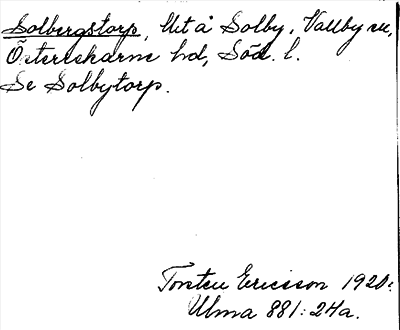 Solbergstorp, Ut å Solby, Vallby sn,
Österrekarne hd, Söd. l.
Se Solbytorp.
Torsten Ericsson 1920.
Ulma 881:24a.